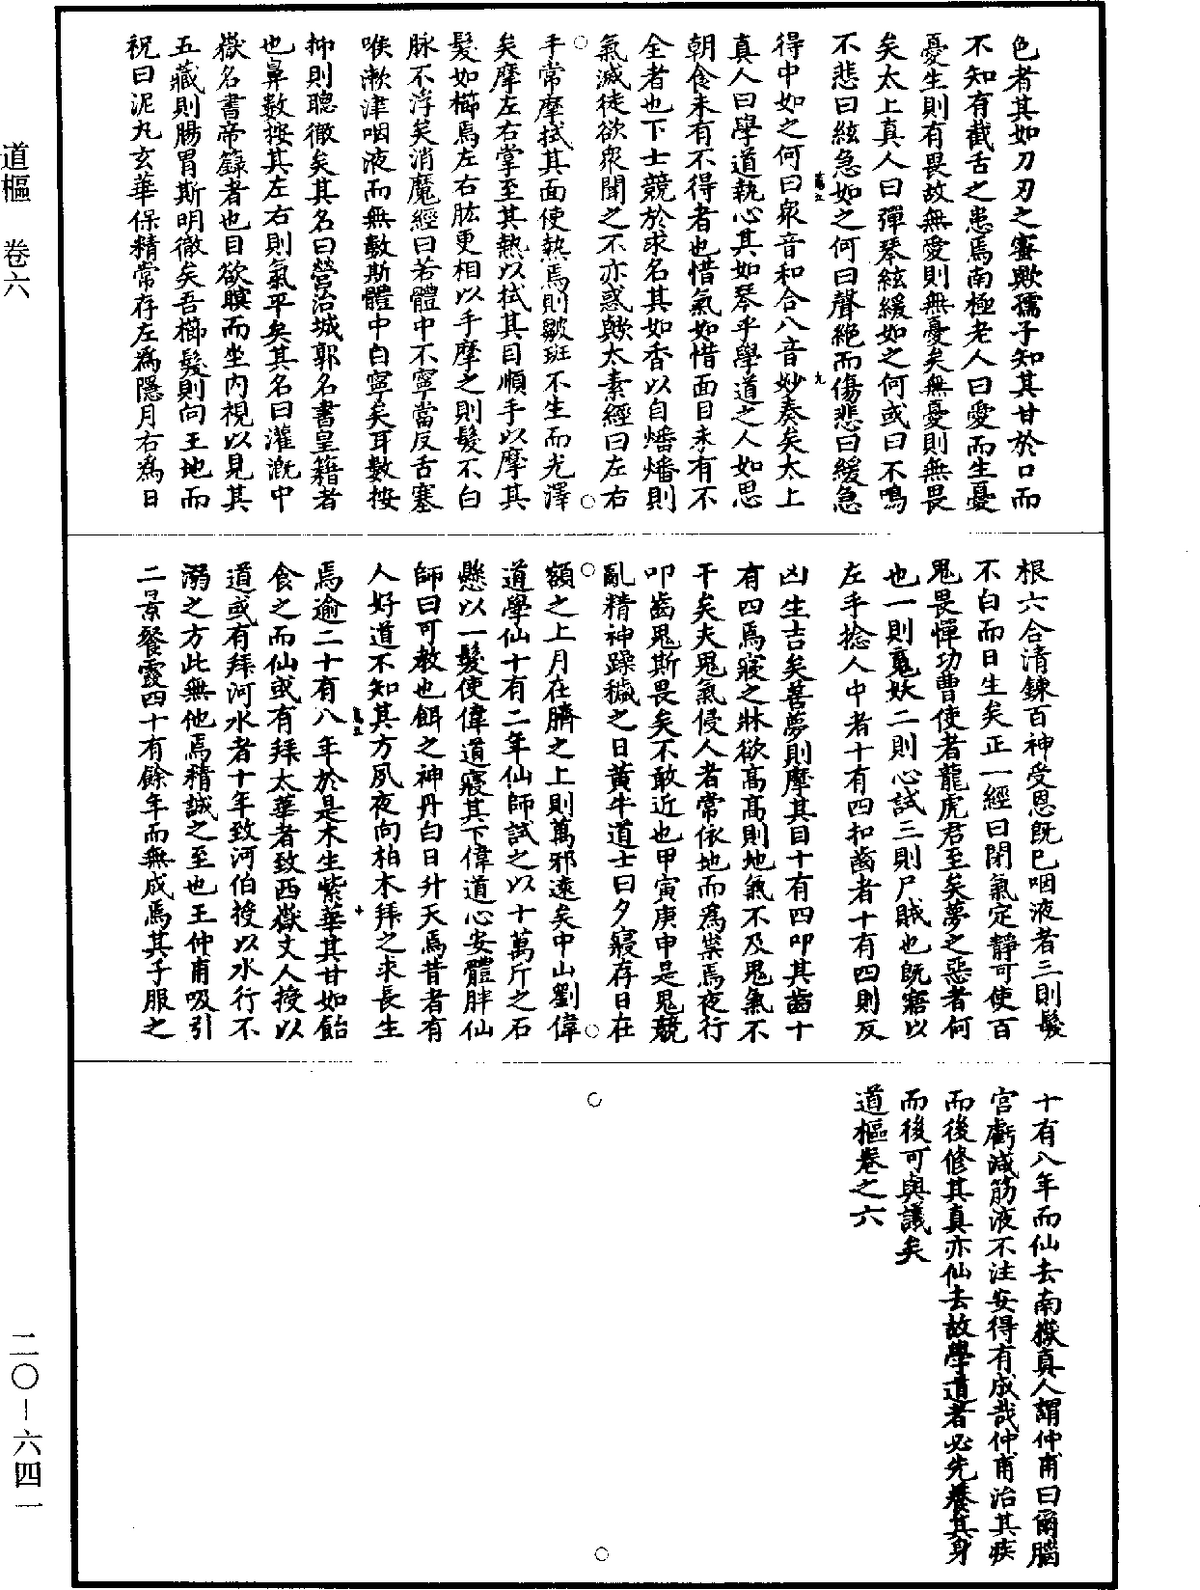 色者其如刀刃之蜜歟孺子知其甘於口而
不知有截舌之患焉南極老人曰愛而生憂
憂生則有畏故無愛則無憂矣無憂則無畏
矣太上真人曰彈琴絃緩如之何或曰不鳴
不悲曰絃急如之何曰聲絕而傷悲曰緩急
得中如之何曰衆音和合八音妙奏矣太上
真人曰學道執心其如琴乎學道之人如思
朝食未有不得者也惜氣如惜面目未有不
全者也下士競於求名其如香以自燔燔則
氣滅徒欲衆聞之不亦惑歟太素經曰左右
手常摩拭其面使熱焉則皺斑不生而光澤
矣摩左右掌至其熱以拭其目順手以摩其
髮如櫛焉左右肱更相以手摩之則髮不白
脉不浮矣消魔經曰若體中不寧當反舌塞
喉漱津咽液而無數斯體中自寧矣耳數按
抑則聰徹矣其名曰營治城郭名書皇籍者
也鼻數按其左右則氣平矣其名曰灌溉中
嶽名書帝錄者也目欲瞑而坐内視以見其
五藏則腸胃斯明徹矣吾櫛髮則向王地而
祝曰泥丸玄華保精常存左為隱月右為日
根六合清鍊百神受恩既已咽液者三則髮
不白而日生矣正一經曰閉氣定靜可使百
鬼畏憚功曹使者龍虎君至矣夢之惡者何
也一則䰟妖二則心試三則尸賊也既寤以
左手捻人中者十有四扣齒者十有四則反
凶生吉矣善夢則摩其目十有四叩其齒十
有四焉寢之牀欲高高則地氣不及鬼氣不
干矣夫鬼氣侵人者常依地而為祟焉夜行
叩齒鬼斯畏矣不敢近也甲寅庚申是鬼競
亂精神躁穢之日黃牛道士曰夕寢存日在
額之上月在臍之上則萬邪遠矣中山劉偉
道學仙十有二年仙師試之以十萬斤之石
懸以一髮使偉道寢其下偉道心安體胖仙
師曰可教也餌之神丹白日升天焉昔者有
人好道不知其方夙夜向柏木拜之求長生
焉逾二十有八年於是木生紫華其甘如飴
食之而仙或有拜太華者致西嶽丈人授以
道或有拜河水者十年致河伯授以水行不
溺之方此無他焉精誠之至也王仲甫吸引
二景餐霞四十有餘年而無成焉其子服之
十有八年而仙去南嶽真人謂仲甫曰爾腦
宮虧減筋液不注安得有成哉仲甫治其疾
而後修其真亦仙去故學道者必先養其身
而後可與議矣
道樞卷之六
道樞 卷六
二〇－六四一